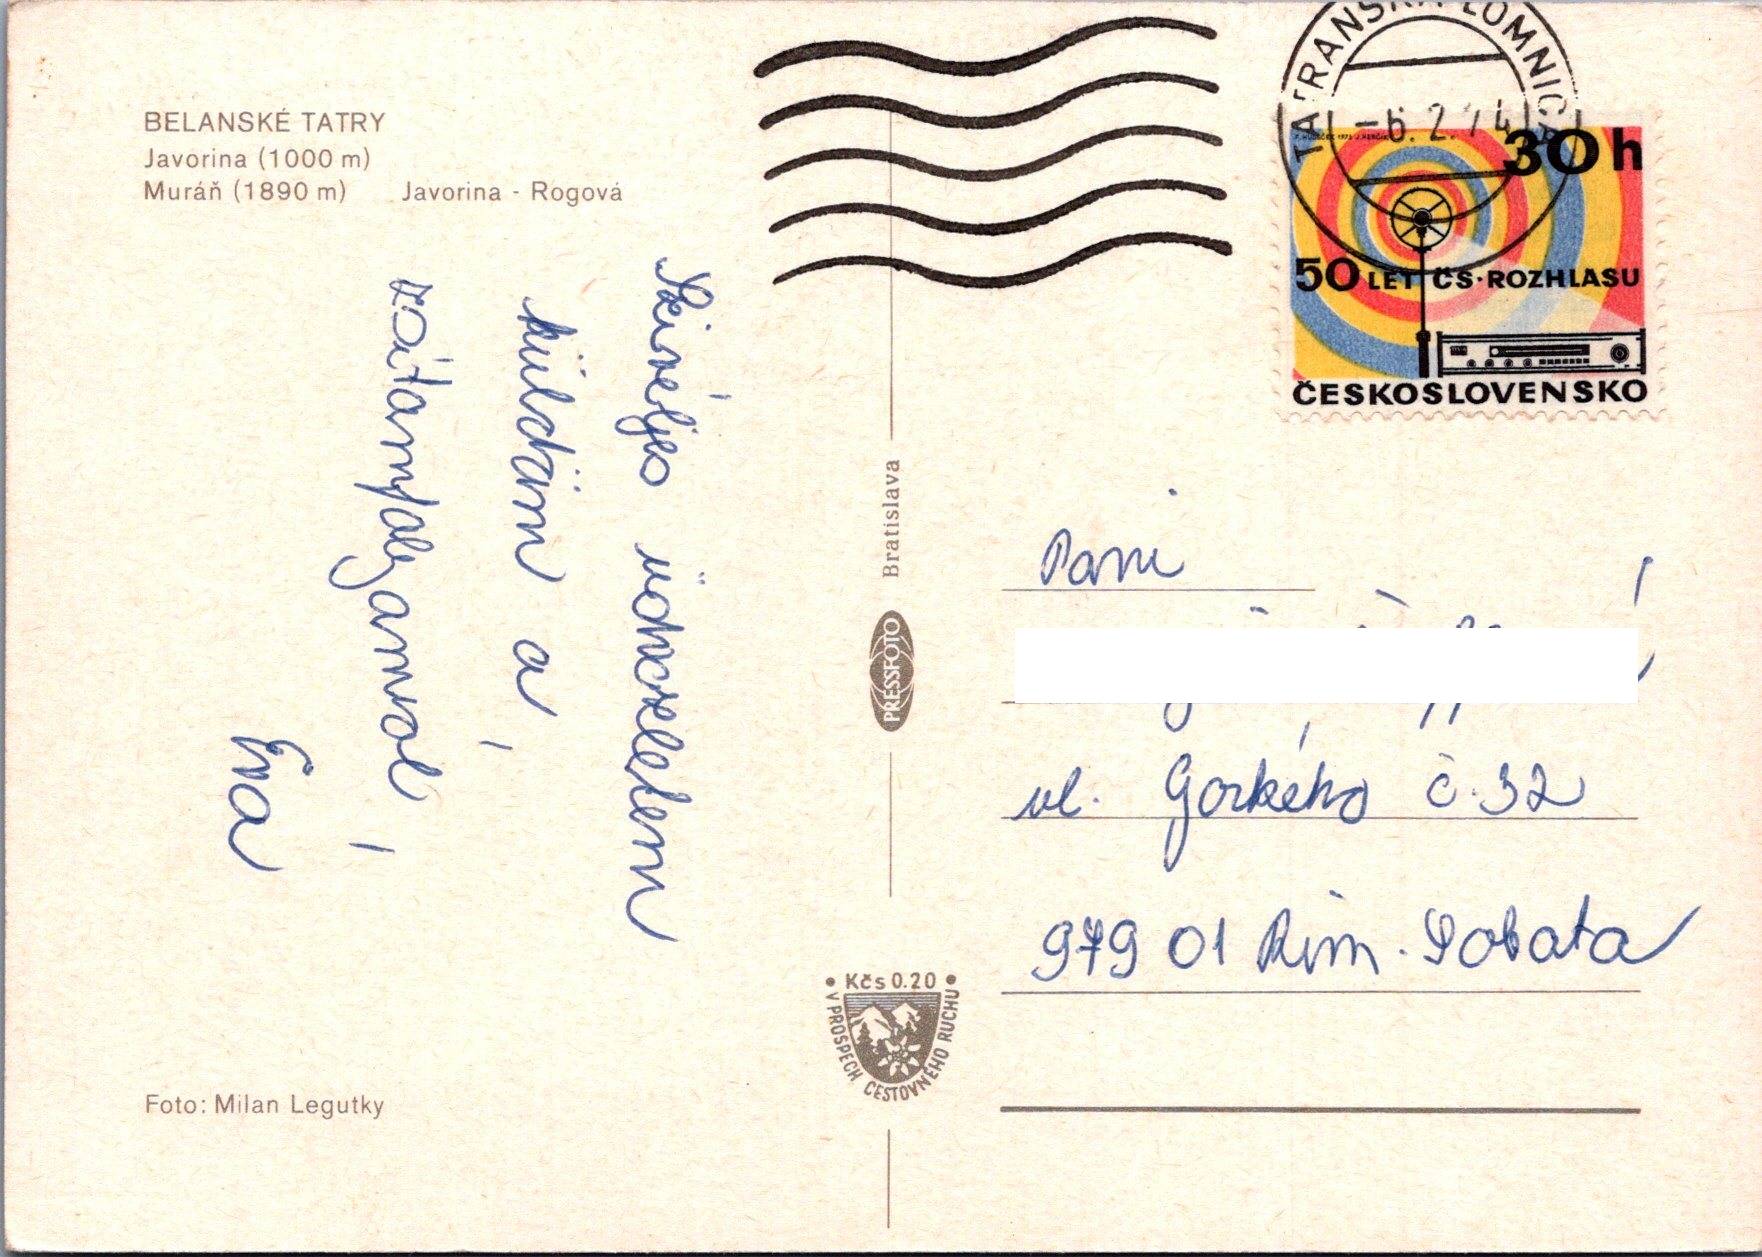 BELANSKÉ TATRY
Javorina (1000 m)
Muráň (1890 m) Javorina - Rogová
Szivélyes üdvözletem
küldöm a
Éva
Foto: Milan Legutky
Bratislava
PRESSFOTO
• Kčs 0.20 •
V PROSPECH CESTOVNÉHO RUCHU
TATRANSKÁ LOMNICA
-6.2.74
30 h
50 LET ČS·ROZHLASU
ČESKOSLOVENSKO
Pani
ul. Gorkého č. 32
979 01 Rim. Sobota